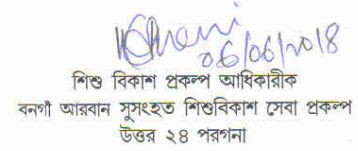 06/06/2018
শিশু বিকাশ প্রকল্প আধিকারীক
বনগাঁ আরবান সুসংহত শিশুবিকাশ সেবা প্রকল্প
উত্তর ২৪ পরগনা